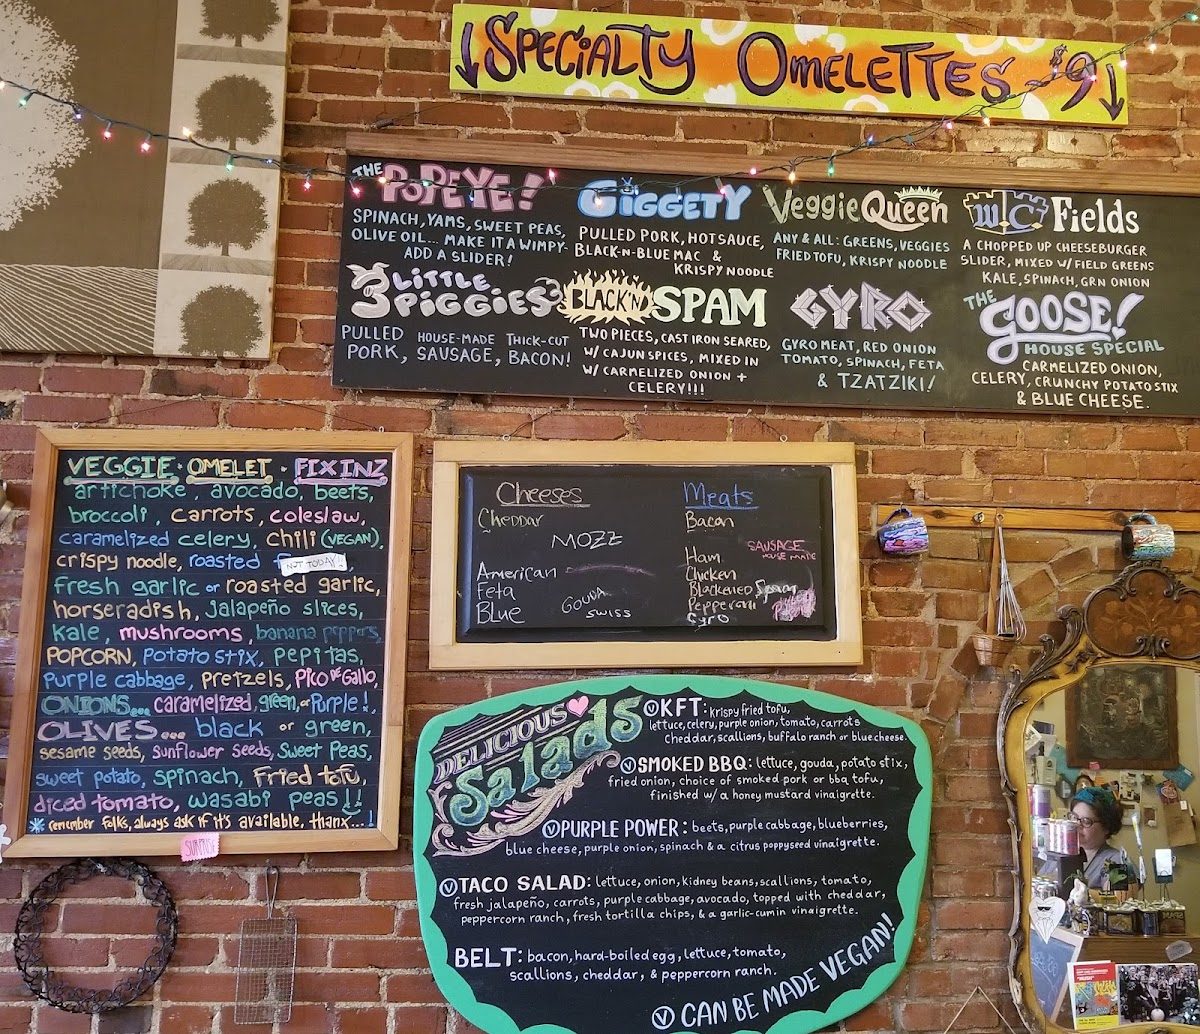 ↓ Specialty Omelettes - $9 ↓
THE POPEYE!
SPINACH, YAMS, SWEET PEAS,
OLIVE OIL... MAKE IT A WIMPY-
ADD A SLIDER!
GIGGETY
PULLED PORK, HOT SAUCE,
BLACK-N-BLUE MAC &
KRISPY NOODLE
Veggie Queen
ANY & ALL: GREENS, VEGGIES
FRIED TOFU, KRISPY NOODLE
W.C. Fields
A CHOPPED UP CHEESEBURGER
SLIDER, MIXED W/ FIELD GREENS
KALE, SPINACH, GRN ONION
3 LITTLE PIGGIES
PULLED PORK, HOUSE-MADE SAUSAGE, THICK-CUT BACON!
BLACK'N'D SPAM
TWO PIECES, CAST IRON SEARED,
W/ CAJUN SPICES, MIXED IN
W/ CARMELIZED ONION +
CELERY!!!
GYRO
GYRO MEAT, RED ONION
TOMATO, SPINACH, FETA
& TZATZIKI!
THE GOOSE!
HOUSE SPECIAL
CARMELIZED ONION,
CELERY, CRUNCHY POTATO STIX
& BLUE CHEESE.
VEGGIE · OMELET · FIXINZ
artichoke, avocado, beets,
broccoli, carrots, coleslaw,
caramelized celery, chili (VEGAN),
crispy noodle, roasted NOT TODAY!!
fresh garlic or roasted garlic,
horseradish, jalapeño slices,
kale, mushrooms, banana peppers,
POPCORN, potato stix, pepitas,
purple cabbage, pretzels, Pico de Gallo,
ONIONS... caramelized, green, or Purple!,
OLIVES... black or green,
sesame seeds, sunflower seeds, Sweet Peas,
sweet potato, spinach, Fried tofu,
diced tomato, wasabi peas!!
* remember folks, always ask if it's available, thanx...!
Cheeses
Cheddar
MOZZ
American
Feta
GOUDA
Blue
SWISS
Meats
Bacon
SAUSAGE
HOUSE MADE
Ham
Chicken
Blackened Spam
Pepperoni
Gyro
DELICIOUS Salads
Ⓥ KFT: krispy fried tofu,
lettuce, celery, purple onion, tomato, carrots
cheddar, scallions, buffalo ranch or blue cheese.
Ⓥ SMOKED BBQ: lettuce, gouda, potato stix,
fried onion, choice of smoked pork or bbq tofu,
finished w/ a honey mustard vinaigrette.
Ⓥ PURPLE POWER: beets, purple cabbage, blueberries,
blue cheese, purple onion, spinach & a citrus poppyseed vinaigrette.
Ⓥ TACO SALAD: lettuce, onion, kidney beans, scallions, tomato,
fresh jalapeño, carrots, purple cabbage, avocado, topped with cheddar,
peppercorn ranch, fresh tortilla chips, & a garlic-cumin vinaigrette.
BELT: bacon, hard-boiled egg, lettuce, tomato,
scallions, cheddar, & peppercorn ranch.
Ⓥ CAN BE MADE VEGAN!